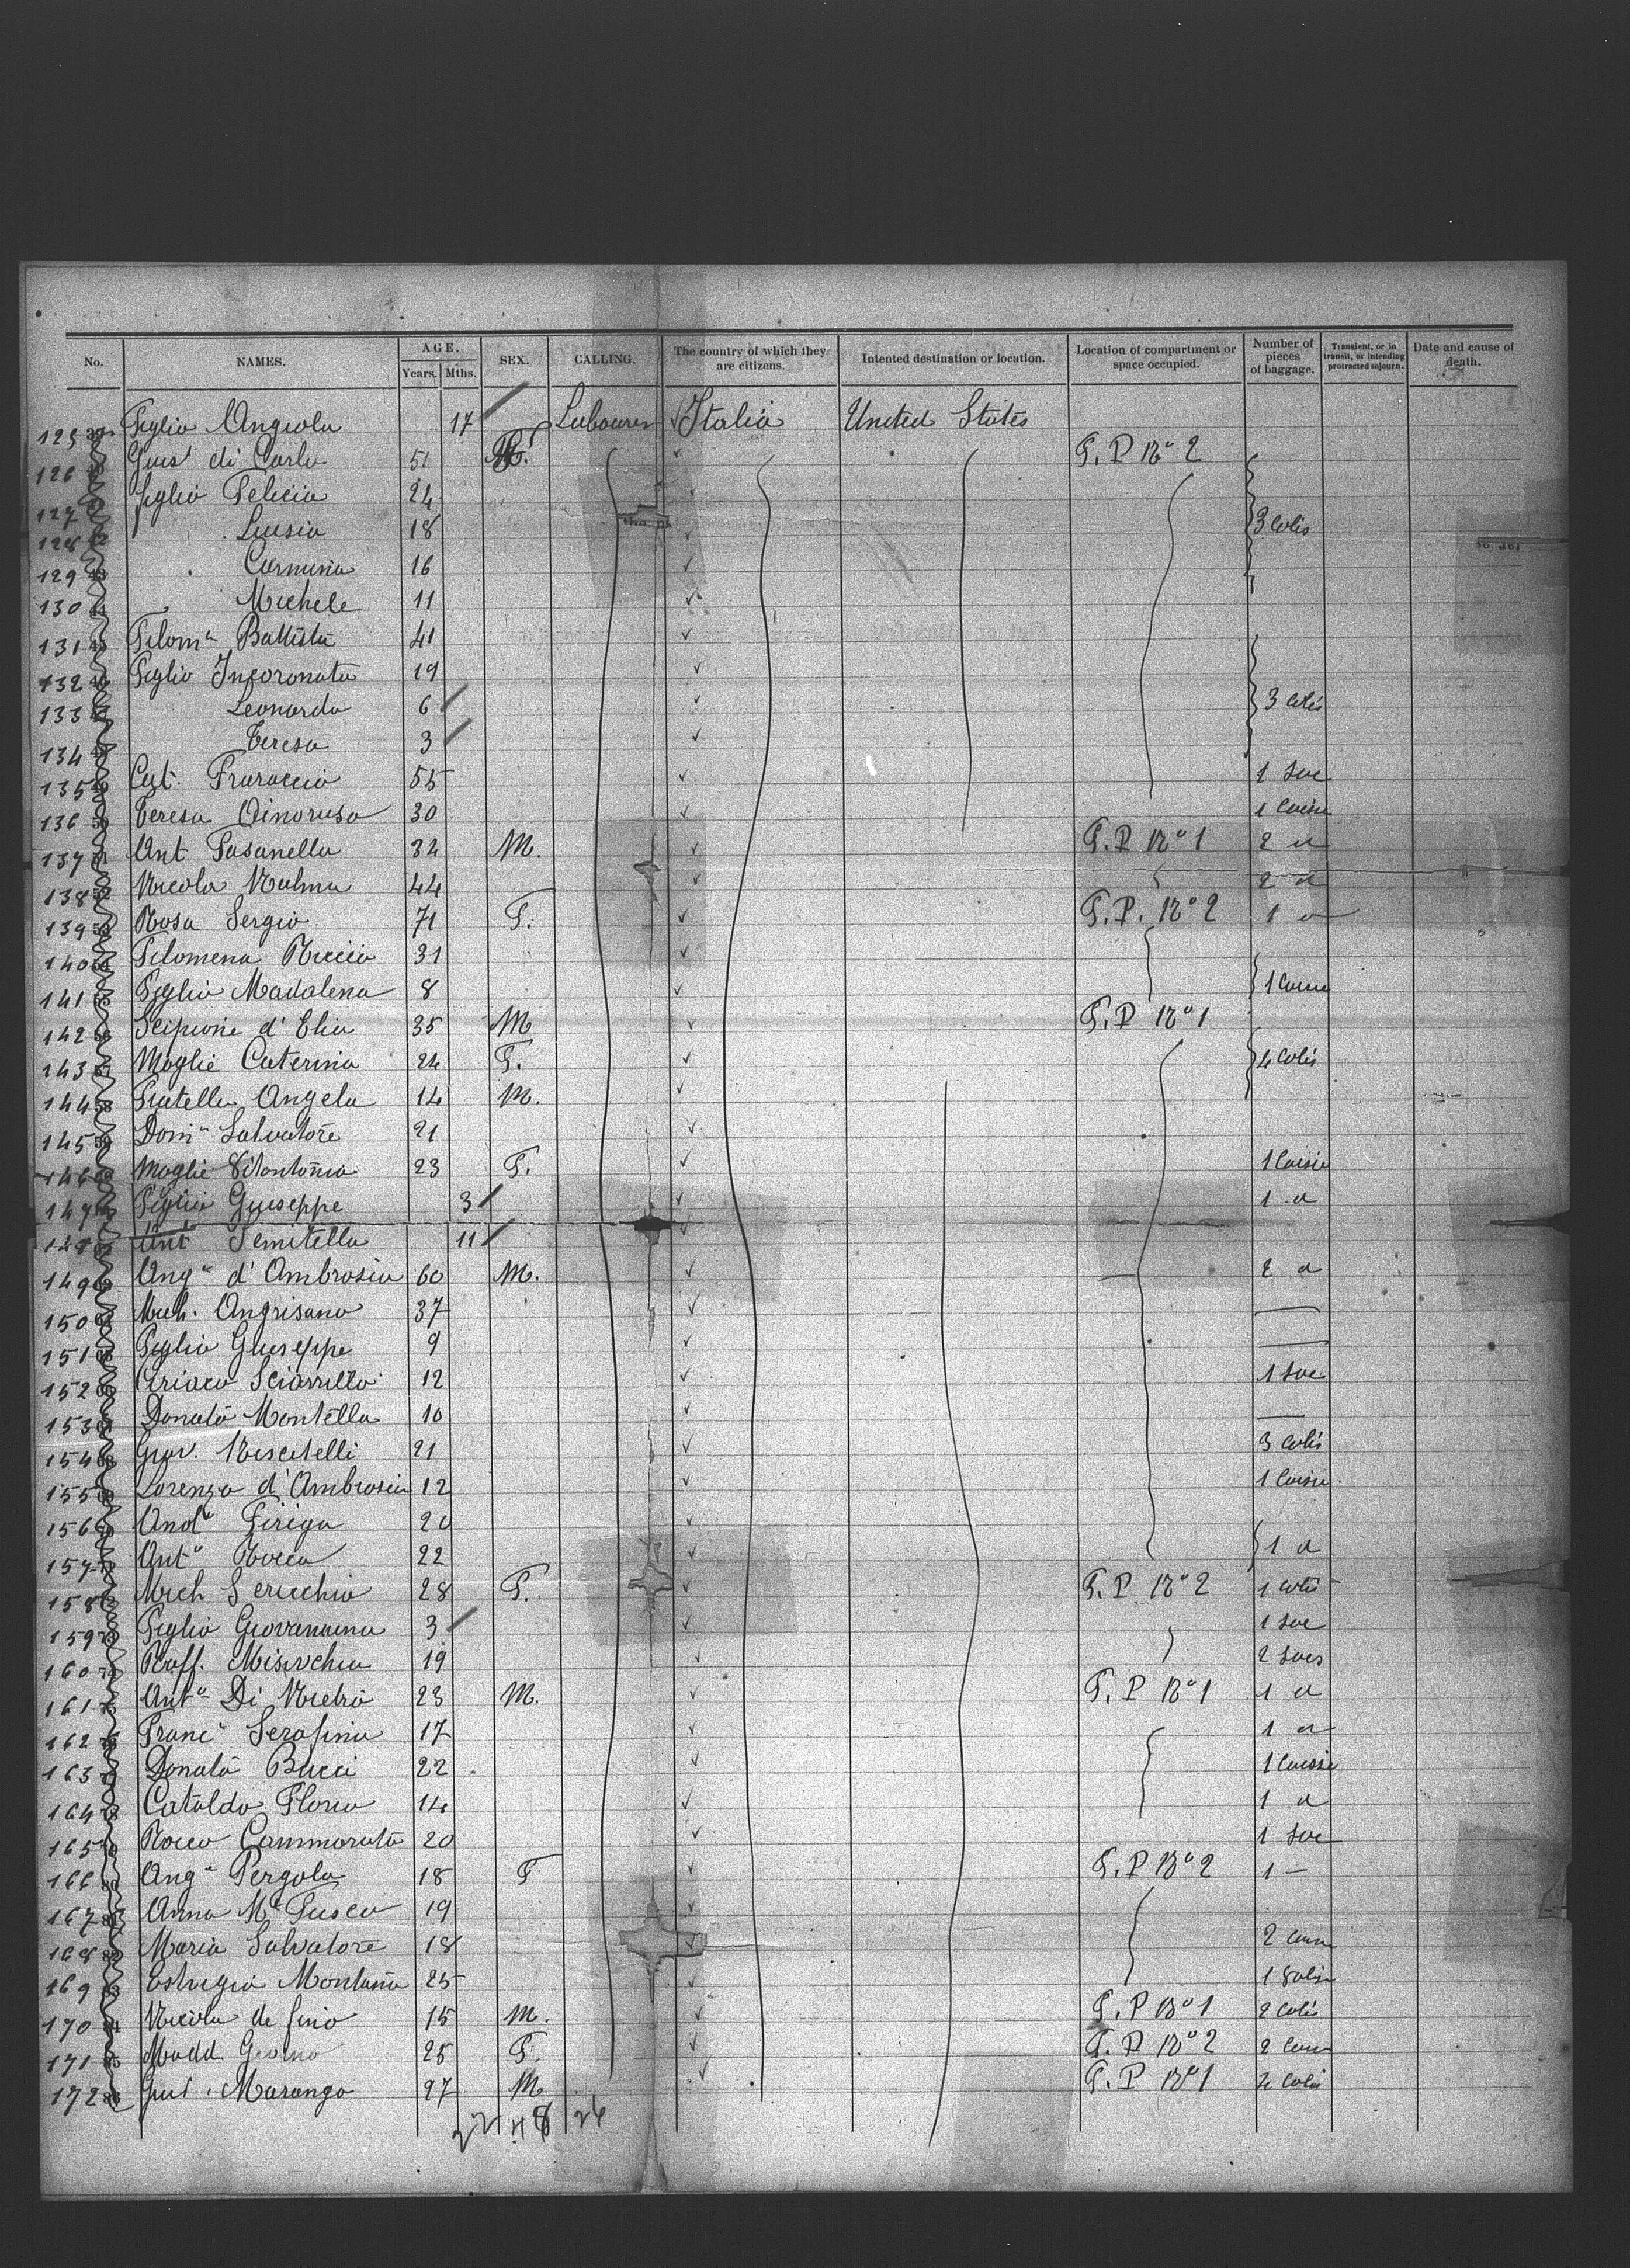 No. NAMES. AGE. Years. Mths. SEX. CALLING. The country of which they are citizens. Intented destination or location. Location of compartment or space occupied. Number of pieces of baggage. Transient, or in transit, or intending protracted sojourn. Date and cause of death.
125 Figlio Angiola 17 Labourer Italia United States
126 Gius di Carlo 51 F. P N° 2
127 figlio Felicia 24
128 Lucia 18 3 Colis
129 Carmina 16
130 Michele 11
131 Filom a Battista 41
132 Figlio Incoronata 19
133 Leonardo 6 3 Colis
134 Teresa 3
135 Cat. Fraraccio 55 1 Sac
136 Teresa 30 1 Caisse
137 Ant Fasanella 34 M. F. P N° 1 2 d
138 Nicola 44 2 d
139 Rosa Sergio 71 F. F. P. N° 2 1 d
140 Filomena Riccio 31
141 Figlio Madalena 8 1 Caisse
142 Scipione d' Elia 35 M F. P N° 1
143 Moglie Caterina 24 F. 4 Colis
144 Fratello Angelo 14 M.
145 Dom o Salvatore 21
146 Moglie Vitantonia 23 F. 1 Caisse
147 Figlio Giuseppe 3 1 d
148 Ant Semitella 11
149 Ang o d' Ambrosio 60 M. 2 d
150 Mich. Angrisano 37 —
151 Figlio Giuseppe 9 —
152 Ciriaco Sciarrillo 12 1 Sac
153 Donato Montella 10 —
154 Giov. Miscitelli 21 3 Colis
155 Lorenzo d' Ambrosio 12 1 Caisse
156 20
157 Ant o Rocco 22 1 d
158 Mich 28 F. F. P. N° 2 1 Colis
159 Figlio Giovannina 3 1 Sac
160 Raff. 19 2 Sacs
161 Ant o Di 23 M. F. P N° 1 1 d
162 Franc o Serafino 17 1 d
163 Donato Bucci 22 1 Caisse
164 Cataldo Florio 14 1 d
165 Rocco Cammarata 20 1 Sac
166 Ang a Pergola 18 F F. P N° 2 1 —
167 Anna M a Fusco 19
168 Maria Salvatore 18 2
169 Montana 25 1
170 Nicola de 15 M. F. P N° 1 2 Colis
171 Madd. 25 F. F. P N° 2 2
172 Gius. Marango 27 M F. P N° 1 4 Colis
26